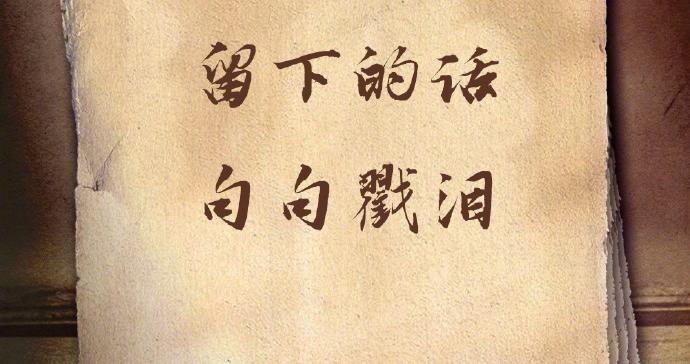 留下的话
句句戳泪